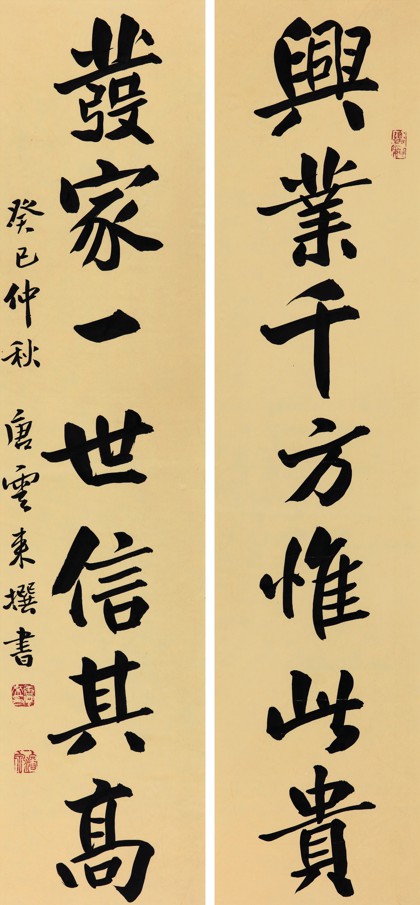 興業千方惟此貴
發家一世信其高
癸巳仲秋 唐雲来撰書